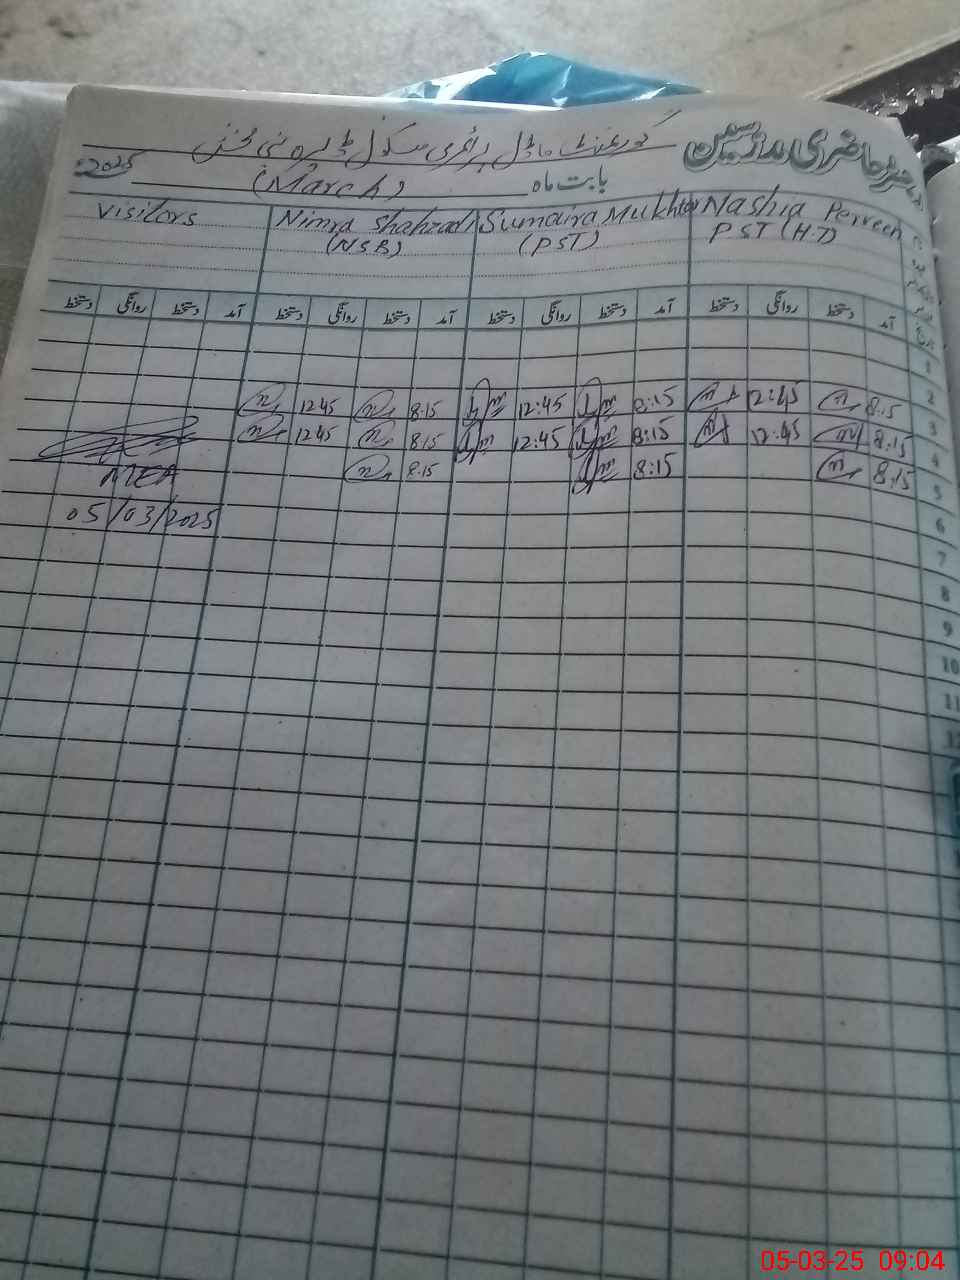 رجسٹر حاضری مدرسین
گورنمنٹ ماڈل پرائمری سکول
بابت ماہ (March) 2025
Nashia Perveen Sumaira Mukhtar Nimra Shahzadi Visitors
PST (H.T) (PST) (NSB)
آمد دستخط روانگی دستخط آمد دستخط روانگی دستخط آمد دستخط روانگی دستخط آمد دستخط روانگی دستخط
1
2
3 8:15 12:45 8:15 12:45 8:15 12:45
4 8:15 12:45 8:15 12:45 8:15 12:45
5 8:15 8:15 8:15 MEA
6 05/03/2025
7
8
9
10
11
12
05-03-25 09:04